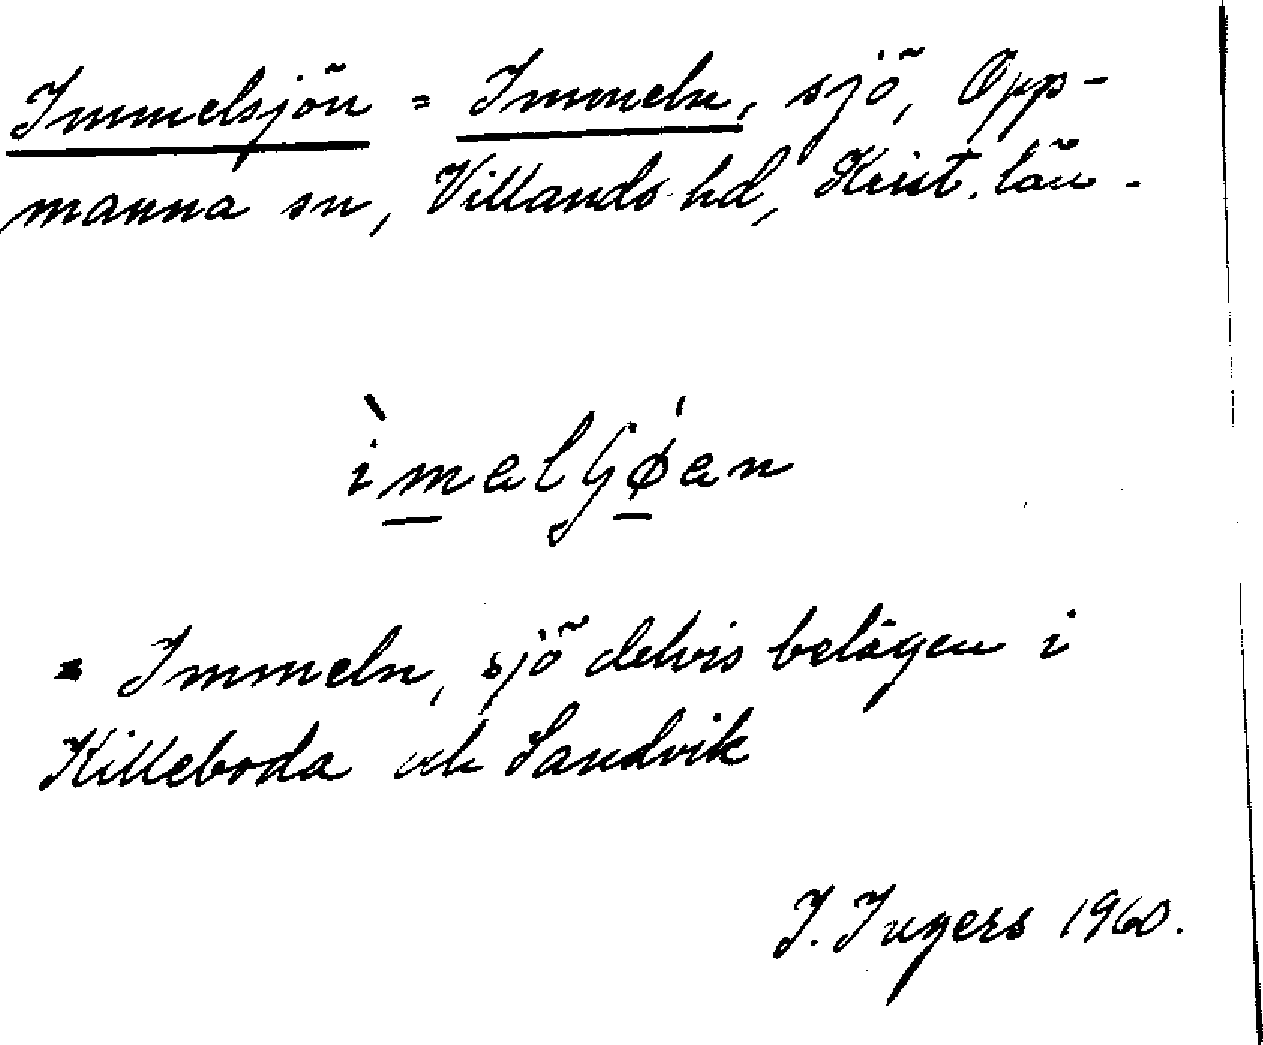 Immelsjön = Immeln, sjö, Opp-
manna sn, Villands hd, Krist. län.
ìmalɧǿan
= Immeln, sjö delvis belägen i
Killeboda och Sandvik
I. Ingers 1960.